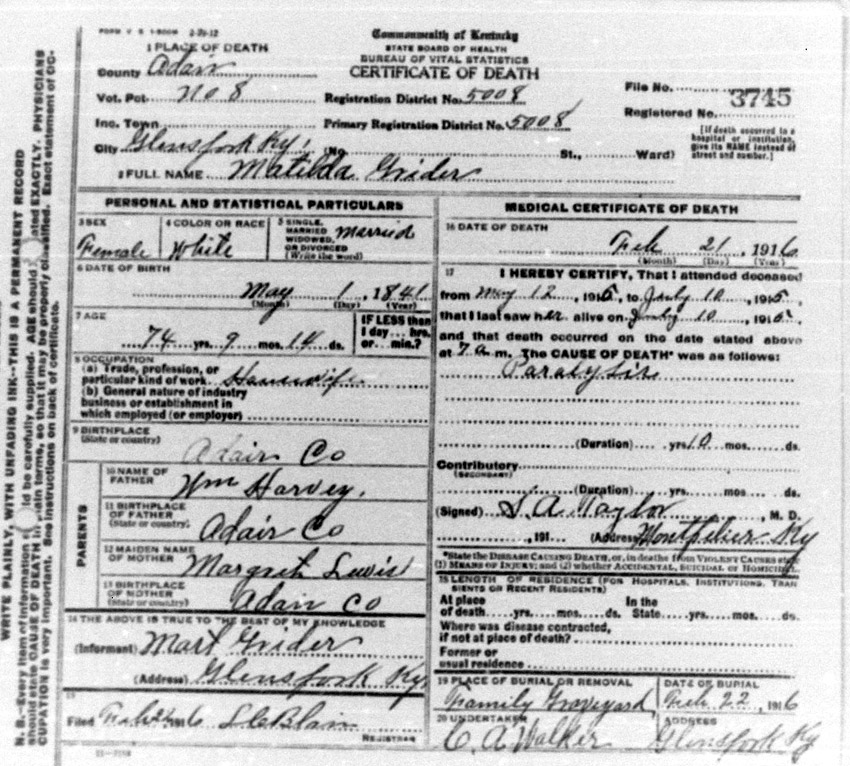 FORM V. S. 1-500M 2-20-12
Commonwealth of Kentucky
STATE BOARD OF HEALTH
BUREAU OF VITAL STATISTICS
CERTIFICATE OF DEATH
1 PLACE OF DEATH
County Adair
Vot. Pct. No 8
Inc. Town
City Glensfork Ky. (No. St., Ward)
Registration District No. 5008
Primary Registration District No. 5008
File No. 3745
Registered No.
[If death occurred in a hospital or institution, give its NAME instead of street and number.]
2 FULL NAME Matilda Grider
PERSONAL AND STATISTICAL PARTICULARS
3 SEX Female
4 COLOR OR RACE White
5 SINGLE, MARRIED WIDOWED, OR DIVORCED (Write the word) Married
6 DATE OF BIRTH
May 1, 1841
(Month) (Day) (Year)
7 AGE
74 yrs. 9 mos. 14 ds.
IF LESS than 1 day ... hrs. or ... min.?
8 OCCUPATION
(a) Trade, profession, or particular kind of work Housewife
(b) General nature of industry business or establishment in which employed (or employer)
9 BIRTHPLACE (State or country)
Adair Co
PARENTS
10 NAME OF FATHER Wm Harvey.
11 BIRTHPLACE OF FATHER (State or country) Adair Co
12 MAIDEN NAME OF MOTHER Margreth Lewis
13 BIRTHPLACE OF MOTHER (State or country) Adair Co
14 THE ABOVE IS TRUE TO THE BEST OF MY KNOWLEDGE
(Informant) Mart Grider
(Address) Glensfork Ky
15
Filed Feb 1916 L C Blair
REGISTRAR
MEDICAL CERTIFICATE OF DEATH
16 DATE OF DEATH
Feb 21, 1916
(Month) (Day) (Year)
17 I HEREBY CERTIFY, That I attended deceased
from May 12, 1915, to July 10, 1915,
that I last saw her alive on July 10, 1915,
and that death occurred on the date stated above
at 7 a m. The CAUSE OF DEATH* was as follows:
Paralysis
(Duration) yrs. 10 mos. ds.
Contributory
(SECONDARY)
(Duration) yrs. mos. ds.
(Signed) S. A. Taylor, M. D.
, 191 (Address) Montpelier Ky
*State the DISEASE CAUSING DEATH, or, in deaths from VIOLENT CAUSES state
(1) MEANS OF INJURY; and (2) whether ACCIDENTAL, SUICIDAL OR HOMICIDAL
18 LENGTH OF RESIDENCE (FOR HOSPITALS, INSTITUTIONS, TRAN
SIENTS OR RECENT RESIDENTS)
At place of death yrs. mos. ds. In the State yrs. mos. ds.
Where was disease contracted, if not at place of death?
Former or usual residence
19 PLACE OF BURIAL OR REMOVAL
Family Graveyard
DATE OF BURIAL
Feb. 22, 1916
20 UNDERTAKER
C. A. Walker
ADDRESS
Glensfork Ky
WRITE PLAINLY, WITH UNFADING INK--THIS IS A PERMANENT RECORD
N. B.--Every item of information should be carefully supplied. AGE should be stated EXACTLY. PHYSICIANS
should state CAUSE OF DEATH in plain terms, so that it may be properly classified. Exact statement of OC-
CUPATION is very important. See instructions on back of certificate.